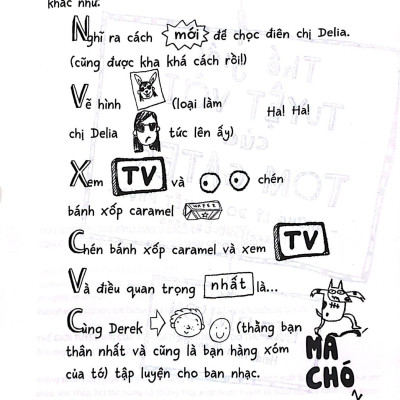 khác như:
Nghĩ ra cách mới để chọc điên chị Delia.
(cũng được kha khá cách rồi!)
Vẽ hình (loại làm
Ha! Ha!
chị Delia tức lên ấy)
Xem TV và chén
bánh xốp caramel WAFER
Chén bánh xốp caramel và xem TV
Và điều quan trọng nhất là...
Cùng Derek (thằng bạn
thân nhất và cũng là bạn hàng xóm
của tớ) tập luyện cho ban nhạc.
MA
CHÓ